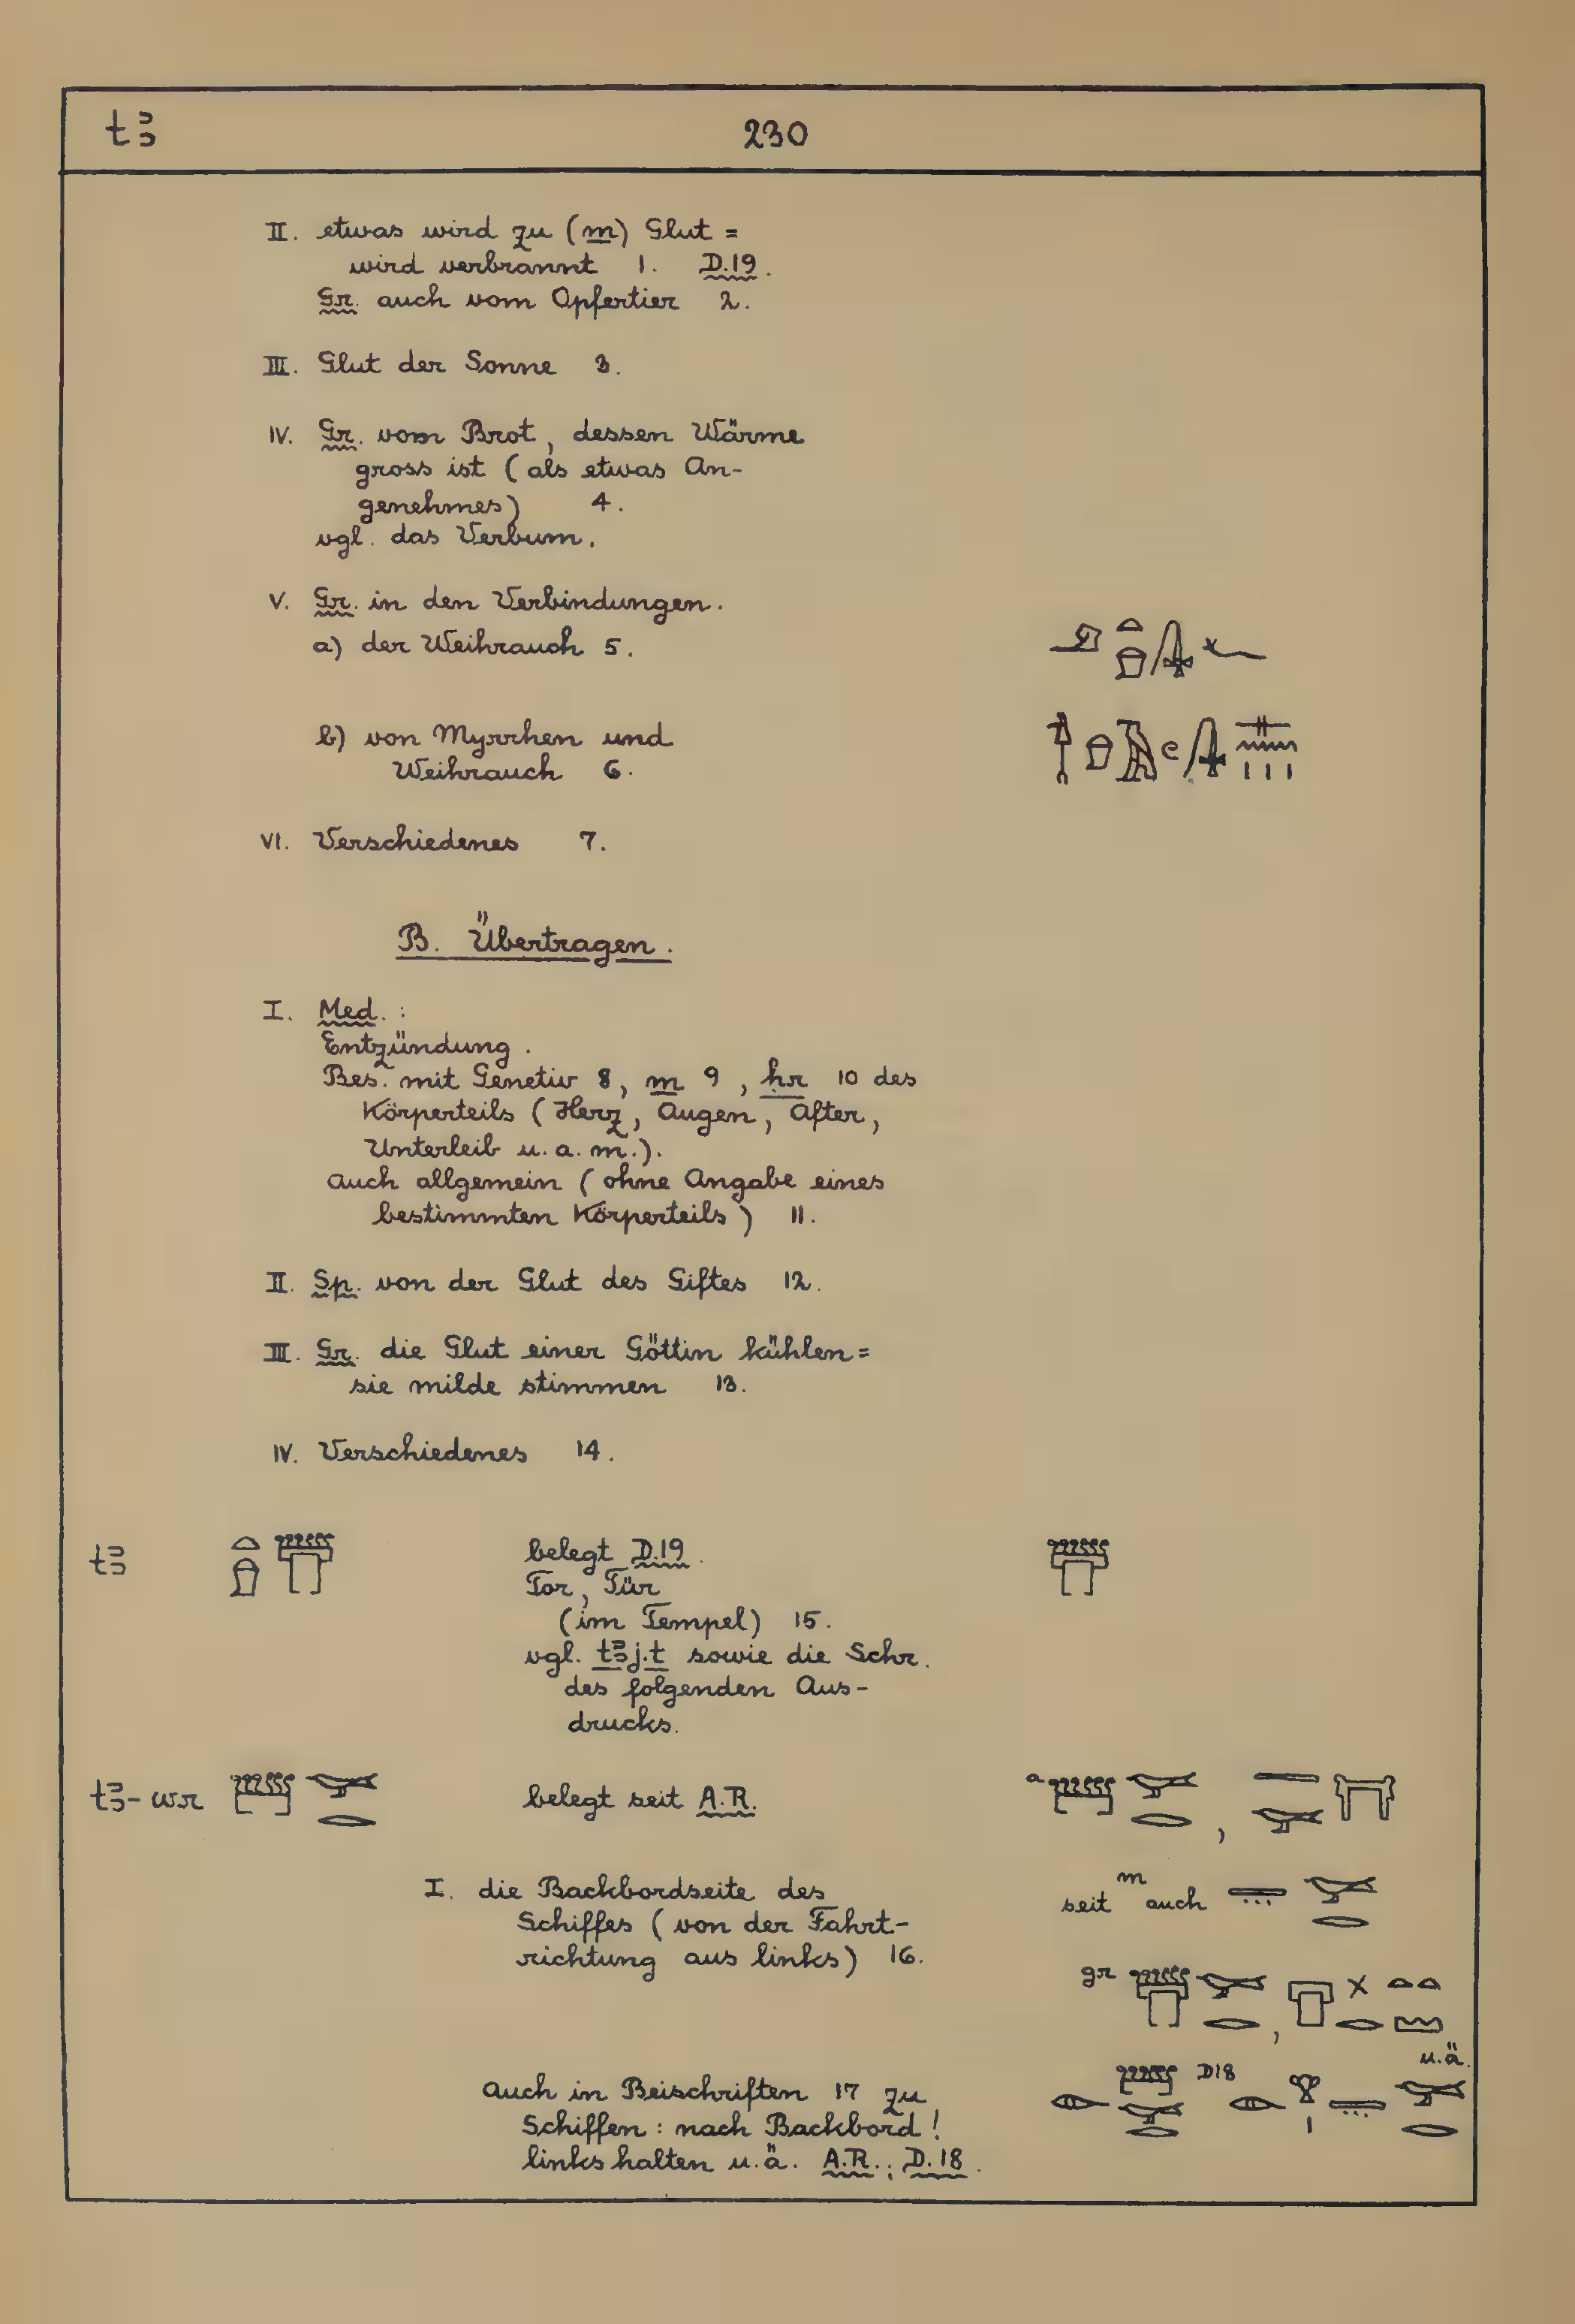 tꜣ 230
II. etwas wird zu (m) Glut =
wird verbrannt 1. D.19.
Gr. auch vom Opfertier 2.
III. Glut der Sonne 3.
IV. Gr. vom Brot, dessen Wärme
gross ist (als etwas An-
genehmes) 4.
vgl. das Verbum.
V. Gr. in den Verbindungen.
a) der Weihrauch 5.
b) von Myrrhen und
Weihrauch 6.
VI. Verschiedenes 7.
B. Übertragen.
I. Med.:
Entzündung.
Bes. mit Genetiv 8, m 9, hr 10 des
Körperteils (Herz, Augen, After,
Unterleib u. a. m.).
Auch allgemein (ohne Angabe eines
bestimmten Körperteils) 11.
II. Sp. von der Glut des Giftes 12.
III. Gr. die Glut einer Göttin kühlen =
sie milde stimmen 13.
IV. Verschiedenes 14.
tꜣ belegt D.19.
Tor, Tür
(im Tempel) 15.
vgl. tꜣj.t sowie die Schr.
des folgenden Aus-
drucks.
tꜣ-wr belegt seit A.R. a
I. die Backbordseite des
Schiffes (von der Fahrt-
richtung aus links) 16.
seit m auch
gr
u.ä.
auch in Beischriften 17 zu D18
Schiffen: nach Backbord!
links halten u.ä. A.R.; D.18.